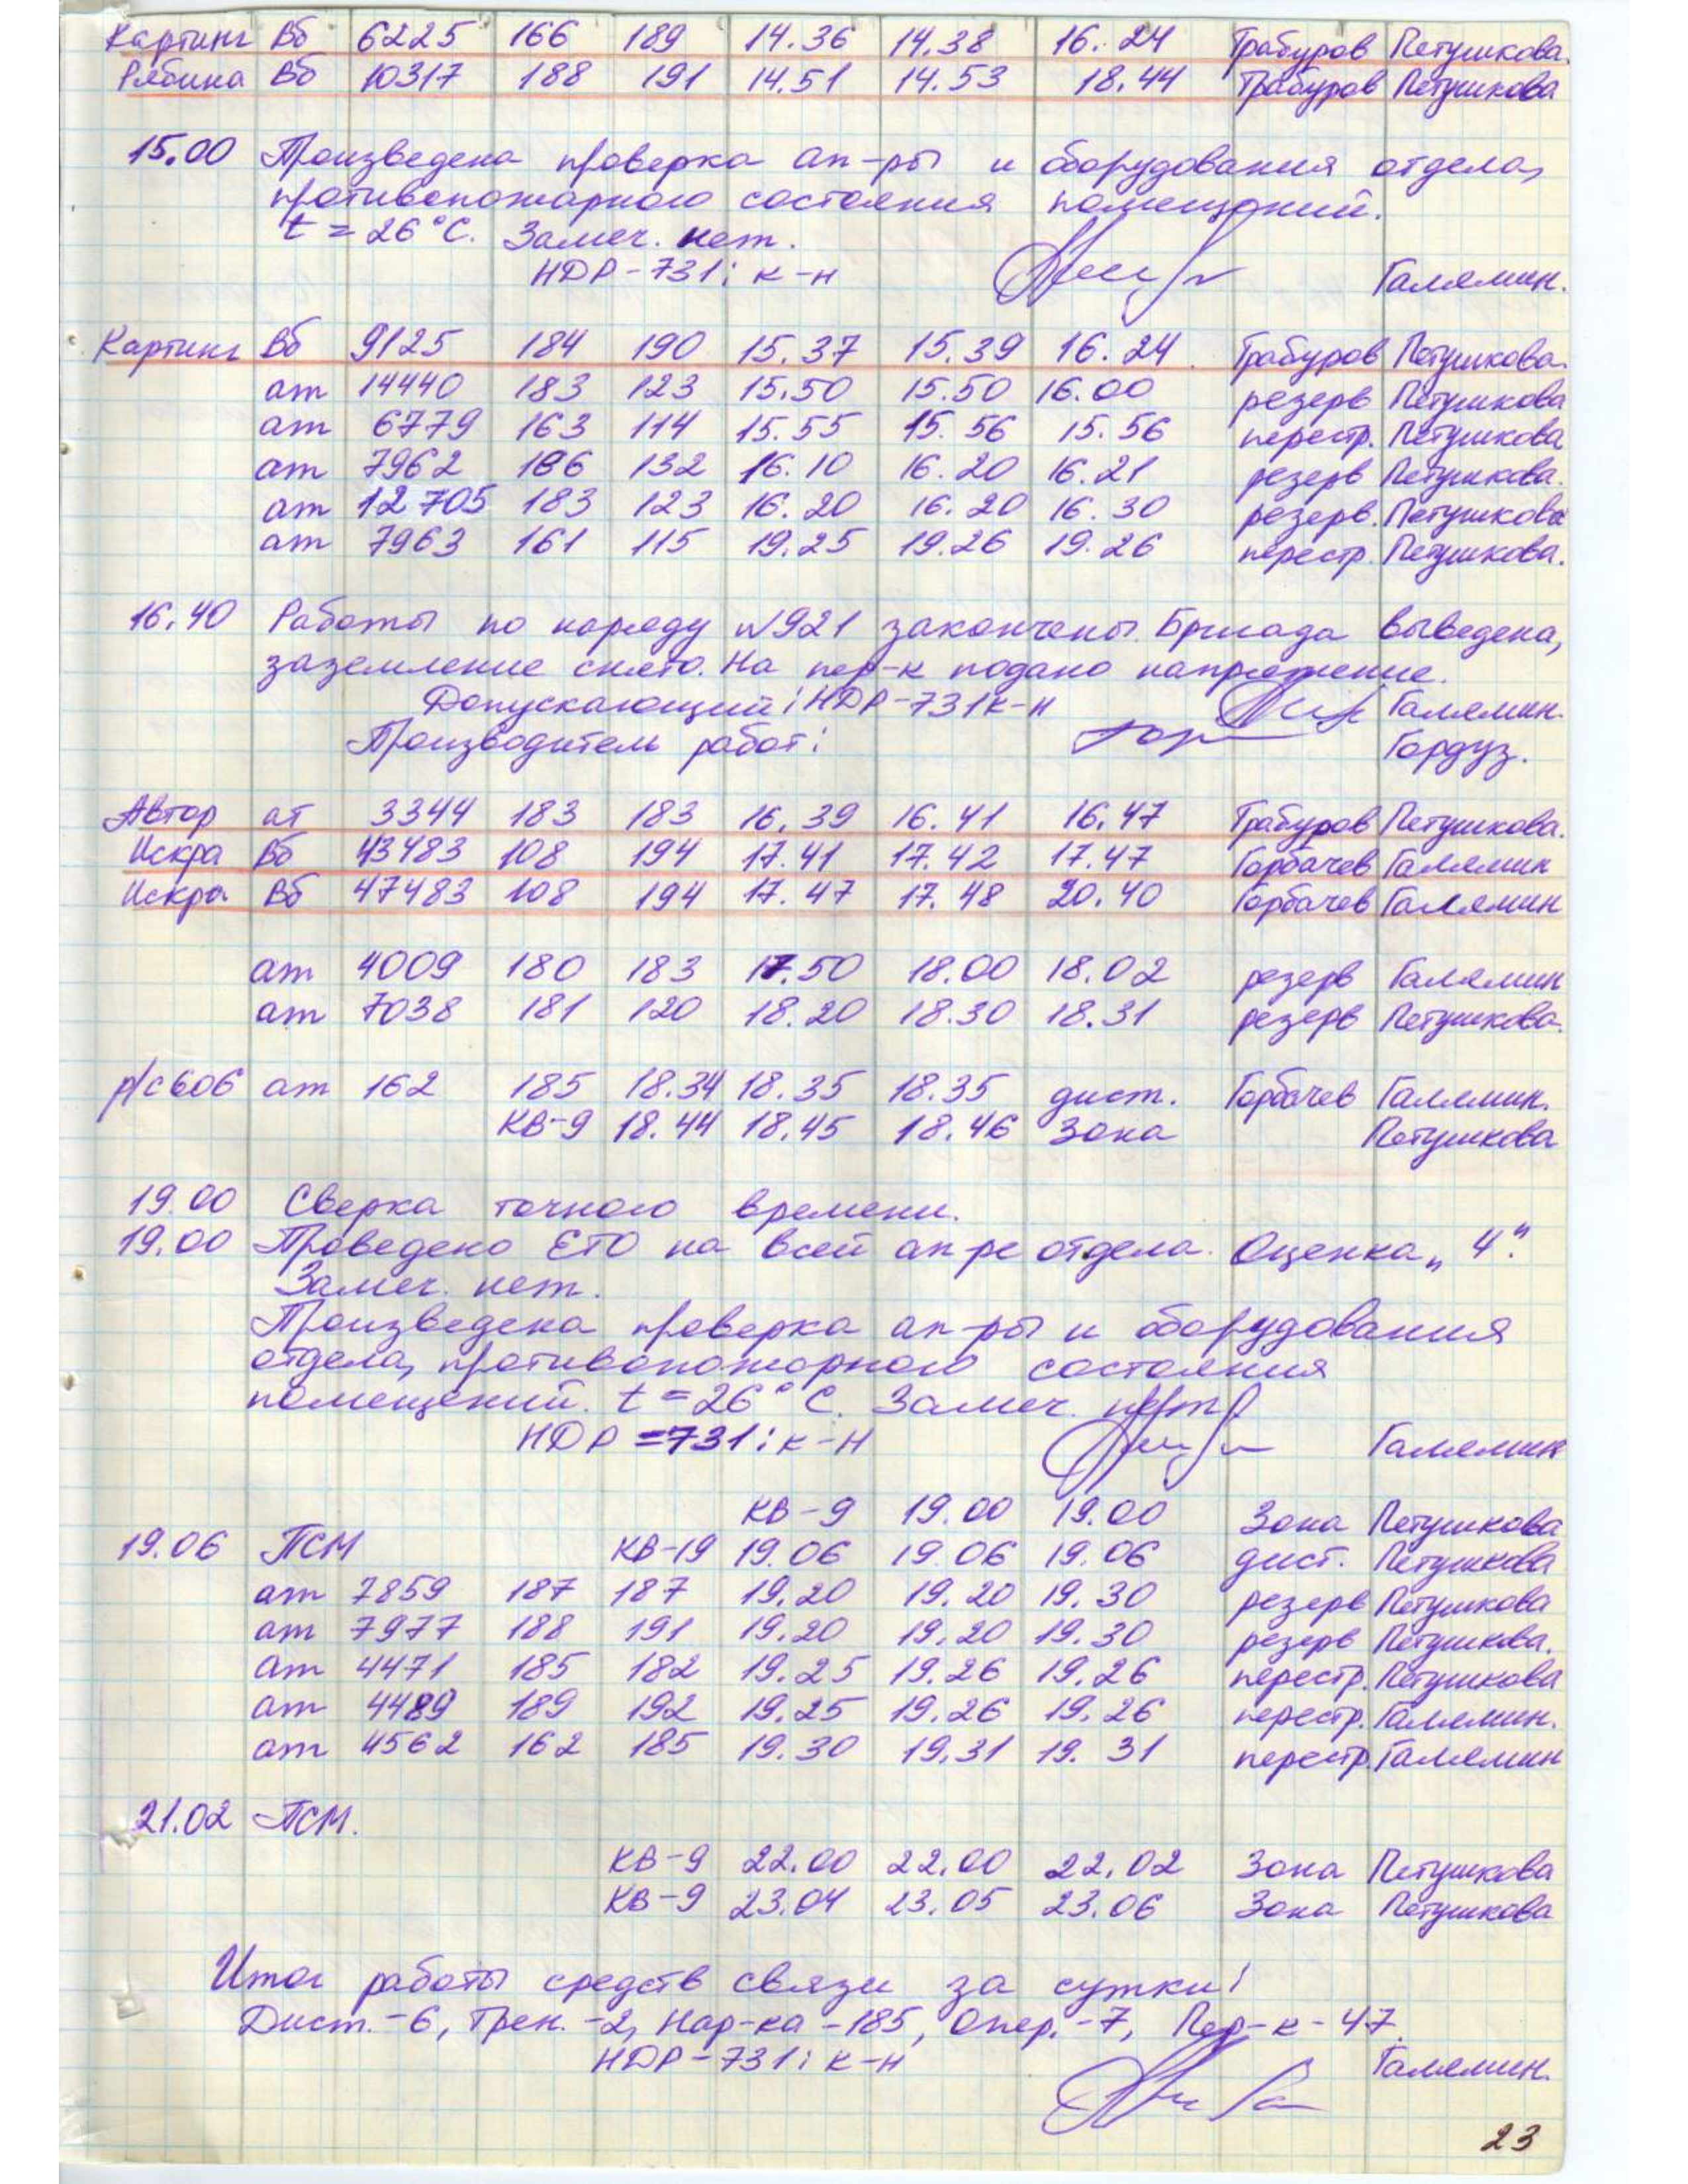 Картинг Вб 6225 166 189 14.36 14.38 16.24 Трабуров Петушкова.
Рябина Вб 10317 188 191 14.51 14.53 18.44 Трабуров Петушкова
15.00 Произведена проверка ап-ры и оборудования отдела,
противопожарного состояния помещений.
t = 26°С. Замеч. нет.
НДР-731: к-н Галямин.
Картинг Вб 9125 184 190 15.37 15.39 16.24 Трабуров Петушкова.
ат 14440 183 123 15.50 15.50 16.00 резерв Петушкова
ат 6779 163 114 15.55 15.56 15.56 перестр. Петушкова
ат 7962 186 132 16.10 16.20 16.21 резерв Петушкова.
ат 12705 183 123 16.20 16.20 16.30 резерв. Петушкова
ат 7963 161 115 19.25 19.26 19.26 перестр. Петушкова.
16.40 Работы по наряду №921 закончены. Бригада выведена,
заземление снято. На пер-к подано напряжение.
Допускающий: НДР-731 к-н Галямин.
Производитель работ: Гордуз.
Автор ат 3344 183 183 16.39 16.41 16.47 Трабуров Петушкова.
Искра Вб 43483 108 194 17.41 17.42 17.47 Горбачев Галямин
Искра Вб 47483 108 194 17.47 17.48 20.40 Горбачев Галямин
ат 4009 180 183 17.50 18.00 18.02 резерв Галямин
ат 7038 181 120 18.20 18.30 18.31 резерв Петушкова.
р/с 606 ат 162 185 18.34 18.35 18.35 дист. Горбачев Галямин.
КВ-9 18.44 18.45 18.46 Зона Петушкова
19.00 Сверка точного времени.
19.00 Проведено ЕТО на всей ап-ре отдела. Оценка „4".
Замеч. нет.
Произведена проверка ап-ры и оборудования
отдела, противопожарного состояния
помещений. t = 26°С. Замеч. нет
НДР-731: к-н Галямин
КВ-9 19.00 19.00 Зона Петушкова
19.06 ПСМ КВ-19 19.06 19.06 19.06 дист. Петушкова
ат 7859 187 187 19.20 19.20 19.30 резерв Петушкова
ат 7977 188 191 19.20 19.20 19.30 резерв Петушкова.
ат 4471 185 182 19.25 19.26 19.26 перестр. Петушкова
ат 4489 189 192 19.25 19.26 19.26 перестр. Галямин.
ат 4562 162 185 19.30 19.31 19.31 перестр. Галямин
21.02 ПСМ.
КВ-9 22.00 22.00 22.02 Зона Петушкова
КВ-9 23.04 23.05 23.06 Зона Петушкова
Итог работы средств связи за сутки:
Дист.-6, Трен.-2, Нар-ка-185, Опер.-7, Пер-к-47.
НДР-731: к-н Галямин.
23